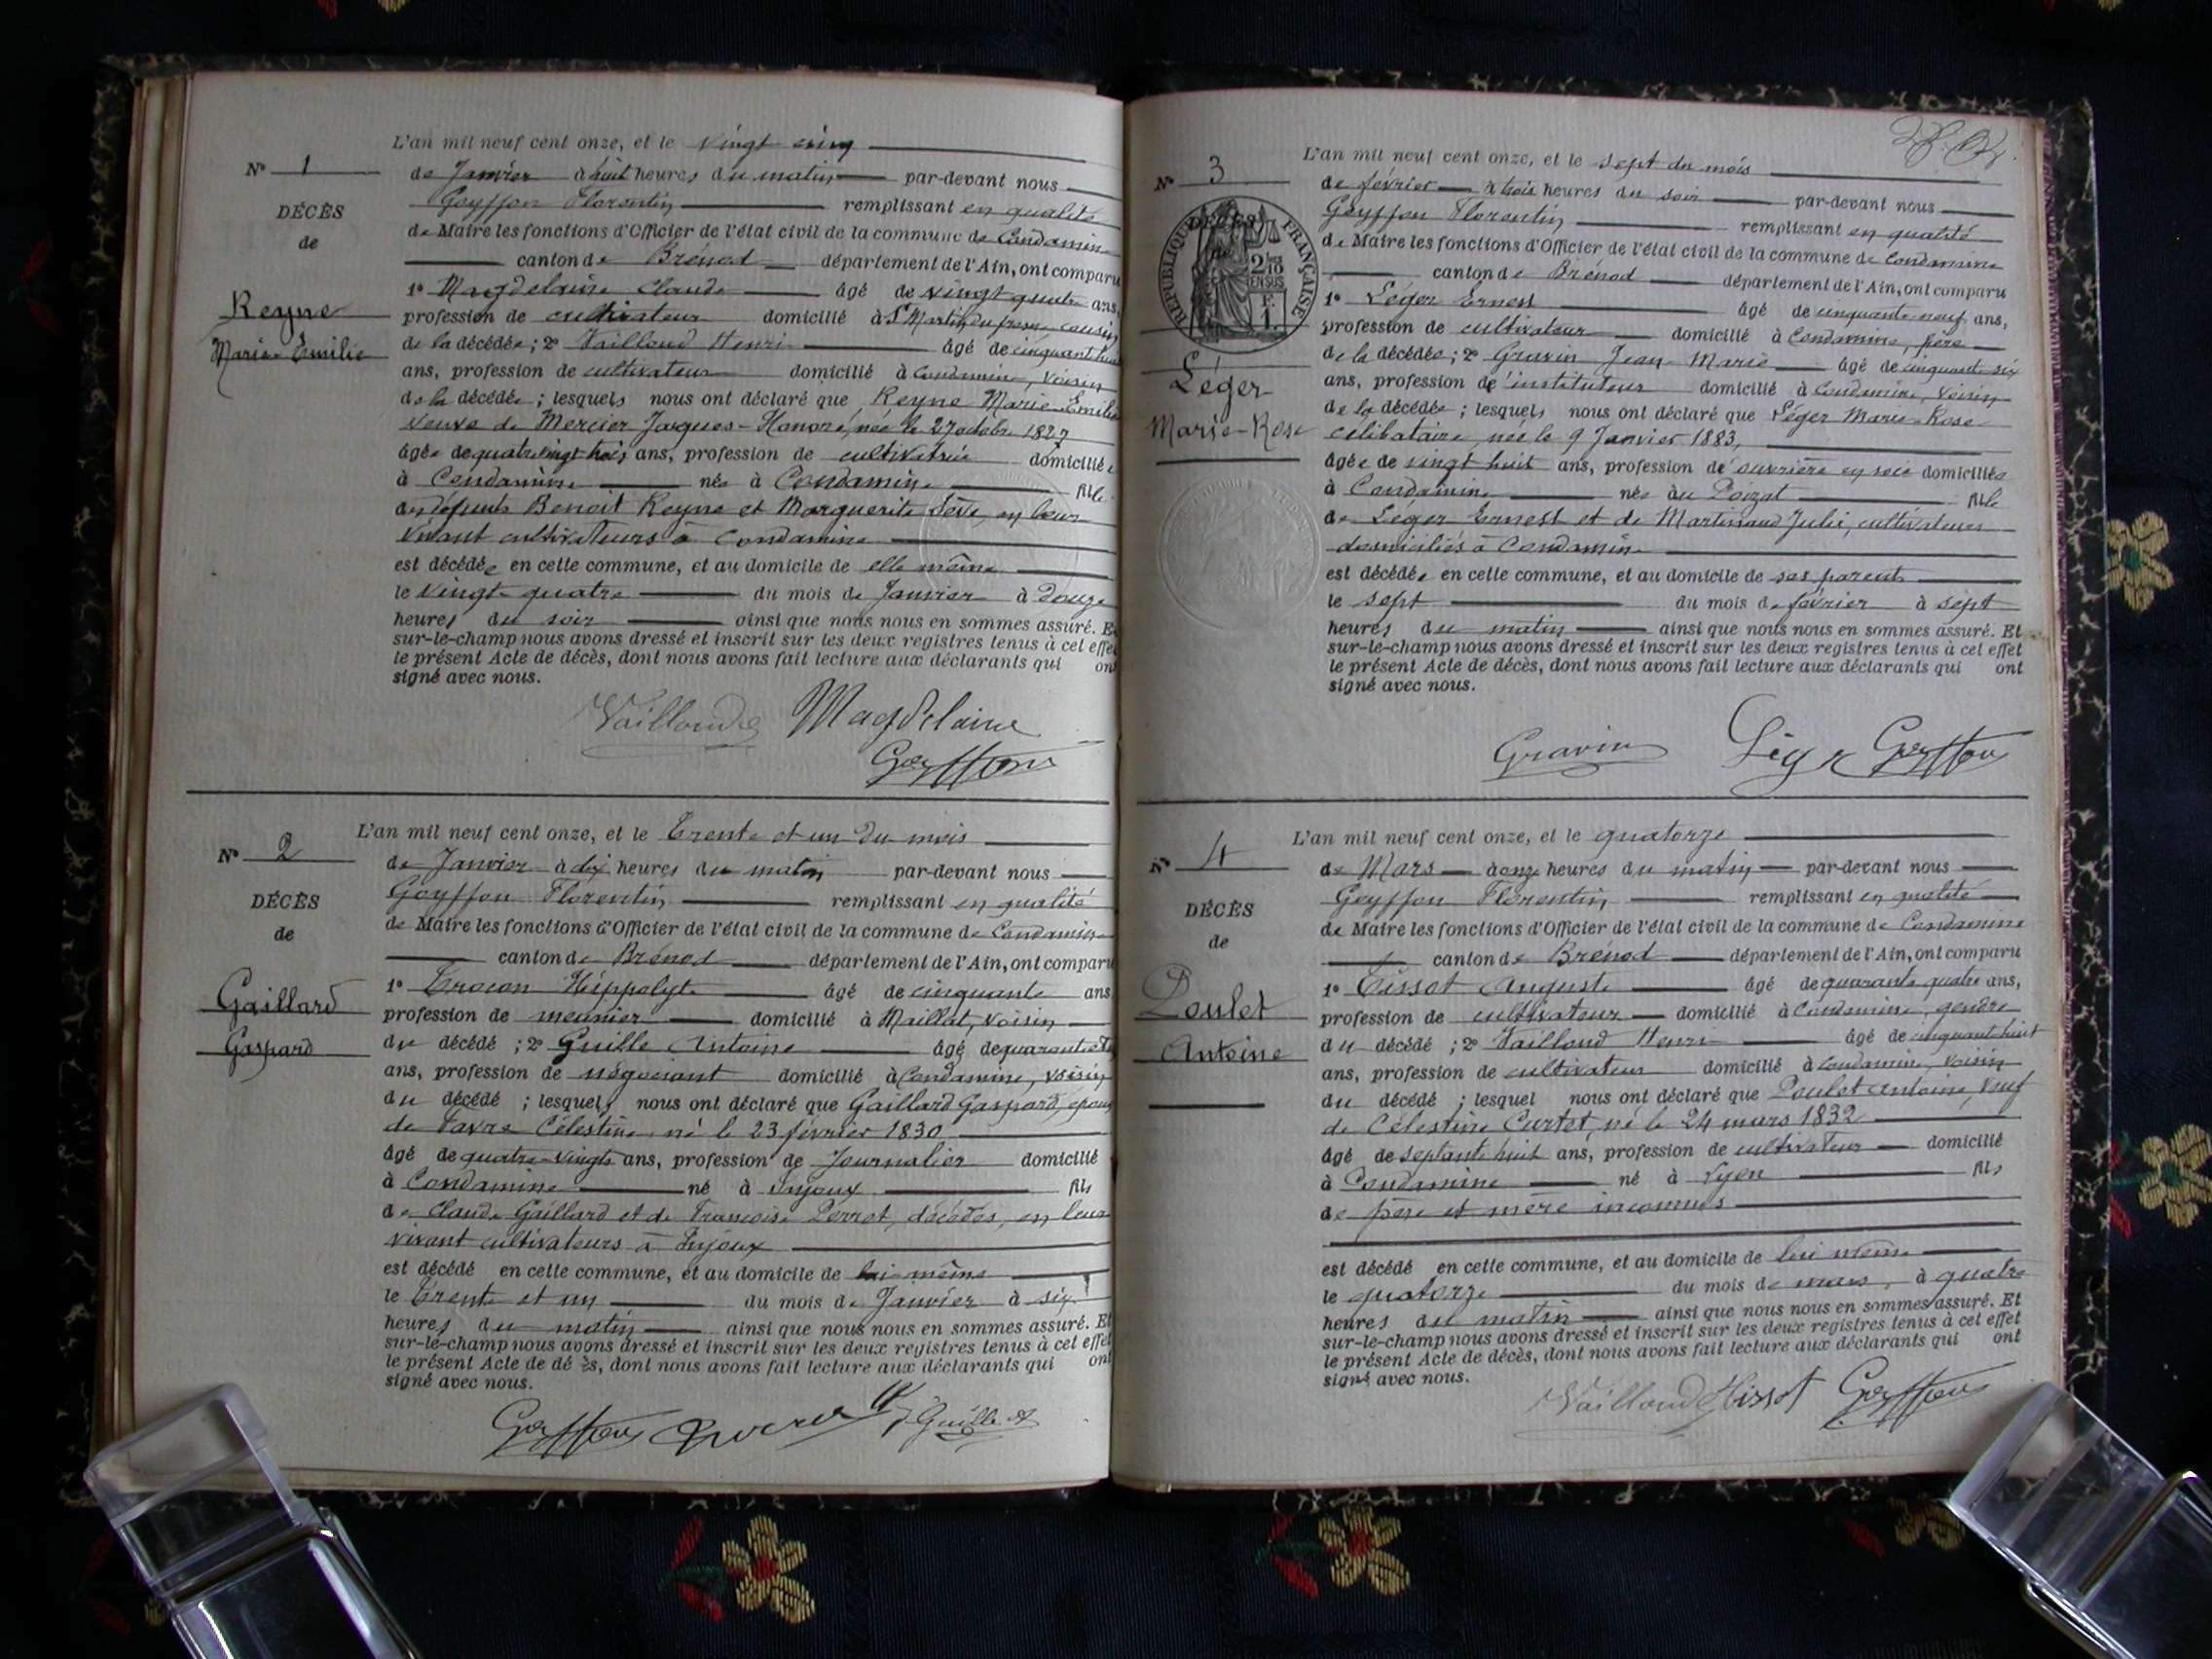 L'an mil neuf cent onze, et le vingt cinq
N° 1
de Janvier à huit heures du matin par-devant nous
Goyffon Florentin remplissant en qualité
DÉCÈS
de
de Maire les fonctions d'Officier de l'état civil de la commune de Condamine
canton de Brénod département de l'Ain, ont comparu
1° Magdelaine Claude âgé de vingt quatre ans,
Reyne
Marie-Emilie
profession de cultivateur domicilié à St Martin du fresne cousin
de la décédée ; 2° Vailloud Henri âgé de cinquant huit
ans, profession de cultivateur domicilié à Condamine, voisin
de la décédée ; lesquels nous ont déclaré que Reyne Marie-Emilie
veuve de Mercier Jacques-Honoré, née le 27 octobre 1827
âgée de quatre vingt trois ans, profession de cultivatrice domiciliée
à Condamine née à Condamine fille
des défunts Benoit Reyne et Marguerite Sève, en leur
vivant cultivateurs à Condamine
est décédée en cette commune, et au domicile de elle même
le vingt-quatre du mois de Janvier à douze
heures du soir ainsi que nous nous en sommes assuré. Et
sur-le-champ nous avons dressé et inscrit sur les deux registres tenus à cet effet
le présent Acte de décès, dont nous avons fait lecture aux déclarants qui ont
signé avec nous.
Vailloud Magdelaine
Goyffon
L'an mil neuf cent onze, et le Trente et un du mois
N° 2
de Janvier à dix heures du matin par-devant nous
Goyffon Florentin remplissant en qualité
DÉCÈS
de
de Maire les fonctions d'Officier de l'état civil de la commune de Condamine
canton de Brénod département de l'Ain, ont comparu
1° Trocon Hippolyte âgé de cinquante ans
Gaillard
Gaspard
profession de meunier domicilié à Maillat, voisin
du décédé ; 2° Guille Antoine âgé de quarante
ans, profession de négociant domicilié à Condamine, voisin
du décédé ; lesquels nous ont déclaré que Gaillard Gaspard, époux
de Favre Célestine, né le 23 février 1830
âgé de quatre-vingts ans, profession de Journalier domicilié
à Condamine né à Injoux fils
de Claude Gaillard et de Françoise Perrot, décédés, en leur
vivant cultivateurs à Injoux
est décédé en cette commune, et au domicile de lui-même
le Trente et un du mois de Janvier à six
heures du matin ainsi que nous nous en sommes assuré. Et
sur-le-champ nous avons dressé et inscrit sur les deux registres tenus à cet effet
le présent Acte de dé ès, dont nous avons fait lecture aux déclarants qui ont
signé avec nous.
Goyffon Guille A
L'an mil neuf cent onze, et le sept du mois
N° 3
de février à trois heures du soir par-devant nous
Goyffon Florentin remplissant en qualité
DÉCÈS
de
RÉPUBLIQUE FRANÇAISE
2/10 EN SUS
F. 1.
de Maire les fonctions d'Officier de l'état civil de la commune de Condamine
canton de Brénod département de l'Ain, ont comparu
1° Léger Ernest âgé de cinquante neuf ans,
profession de cultivateur domicilié à Condamine, père
Léger
Marie-Rose
de la décédée ; 2° Gravin Jean-Marie âgé de cinquante six
ans, profession d'instituteur domicilié à Condamine, voisin
de la décédée ; lesquels nous ont déclaré que Léger Marie-Rose
célibataire, née le 9 Janvier 1883,
âgée de vingt huit ans, profession de ouvrière en soie domiciliée
à Condamine née au Poizat fille
de Léger Ernest et de Martinaud Julie, cultivateurs
domiciliés à Condamine
est décédée en cette commune, et au domicile de ses parents
le sept du mois de février à sept
heures du matin ainsi que nous nous en sommes assuré. Et
sur-le-champ nous avons dressé et inscrit sur les deux registres tenus à cet effet
le présent Acte de décès, dont nous avons fait lecture aux déclarants qui ont
signé avec nous.
Gravin Léger Goyffon
L'an mil neuf cent onze, et le quatorze
N° 4
de Mars à onze heures du matin par-devant nous
Goyffon Florentin remplissant en qualité
DÉCÈS
de
de Maire les fonctions d'Officier de l'état civil de la commune de Condamine
canton de Brénod département de l'Ain, ont comparu
1° Tissot Auguste âgé de quarante quatre ans,
Poulet
Antoine
profession de cultivateur domicilié à Condamine, gendre
du décédé ; 2° Vailloud Henri âgé de cinquant huit
ans, profession de cultivateur domicilié à Condamine, voisin
du décédé ; lesquel nous ont déclaré que Poulet Antoine, veuf
de Célestine Curtet, né le 24 mars 1832
âgé de septante huit ans, profession de cultivateur domicilié
à Condamine né à Lyon fils
de père et mère inconnus
est décédé en cette commune, et au domicile de lui même
le quatorze du mois de mars à quatre
heures du matin ainsi que nous nous en sommes assuré. Et
sur-le-champ nous avons dressé et inscrit sur les deux registres tenus à cet effet
le présent Acte de décès, dont nous avons fait lecture aux déclarants qui ont
signé avec nous.
Vailloud Tissot Goyffon